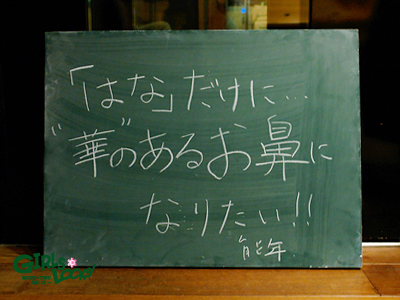 「はな」だけに…
"華"のあるお鼻に
なりたい!!
能年
GIRLS
LOCKS!